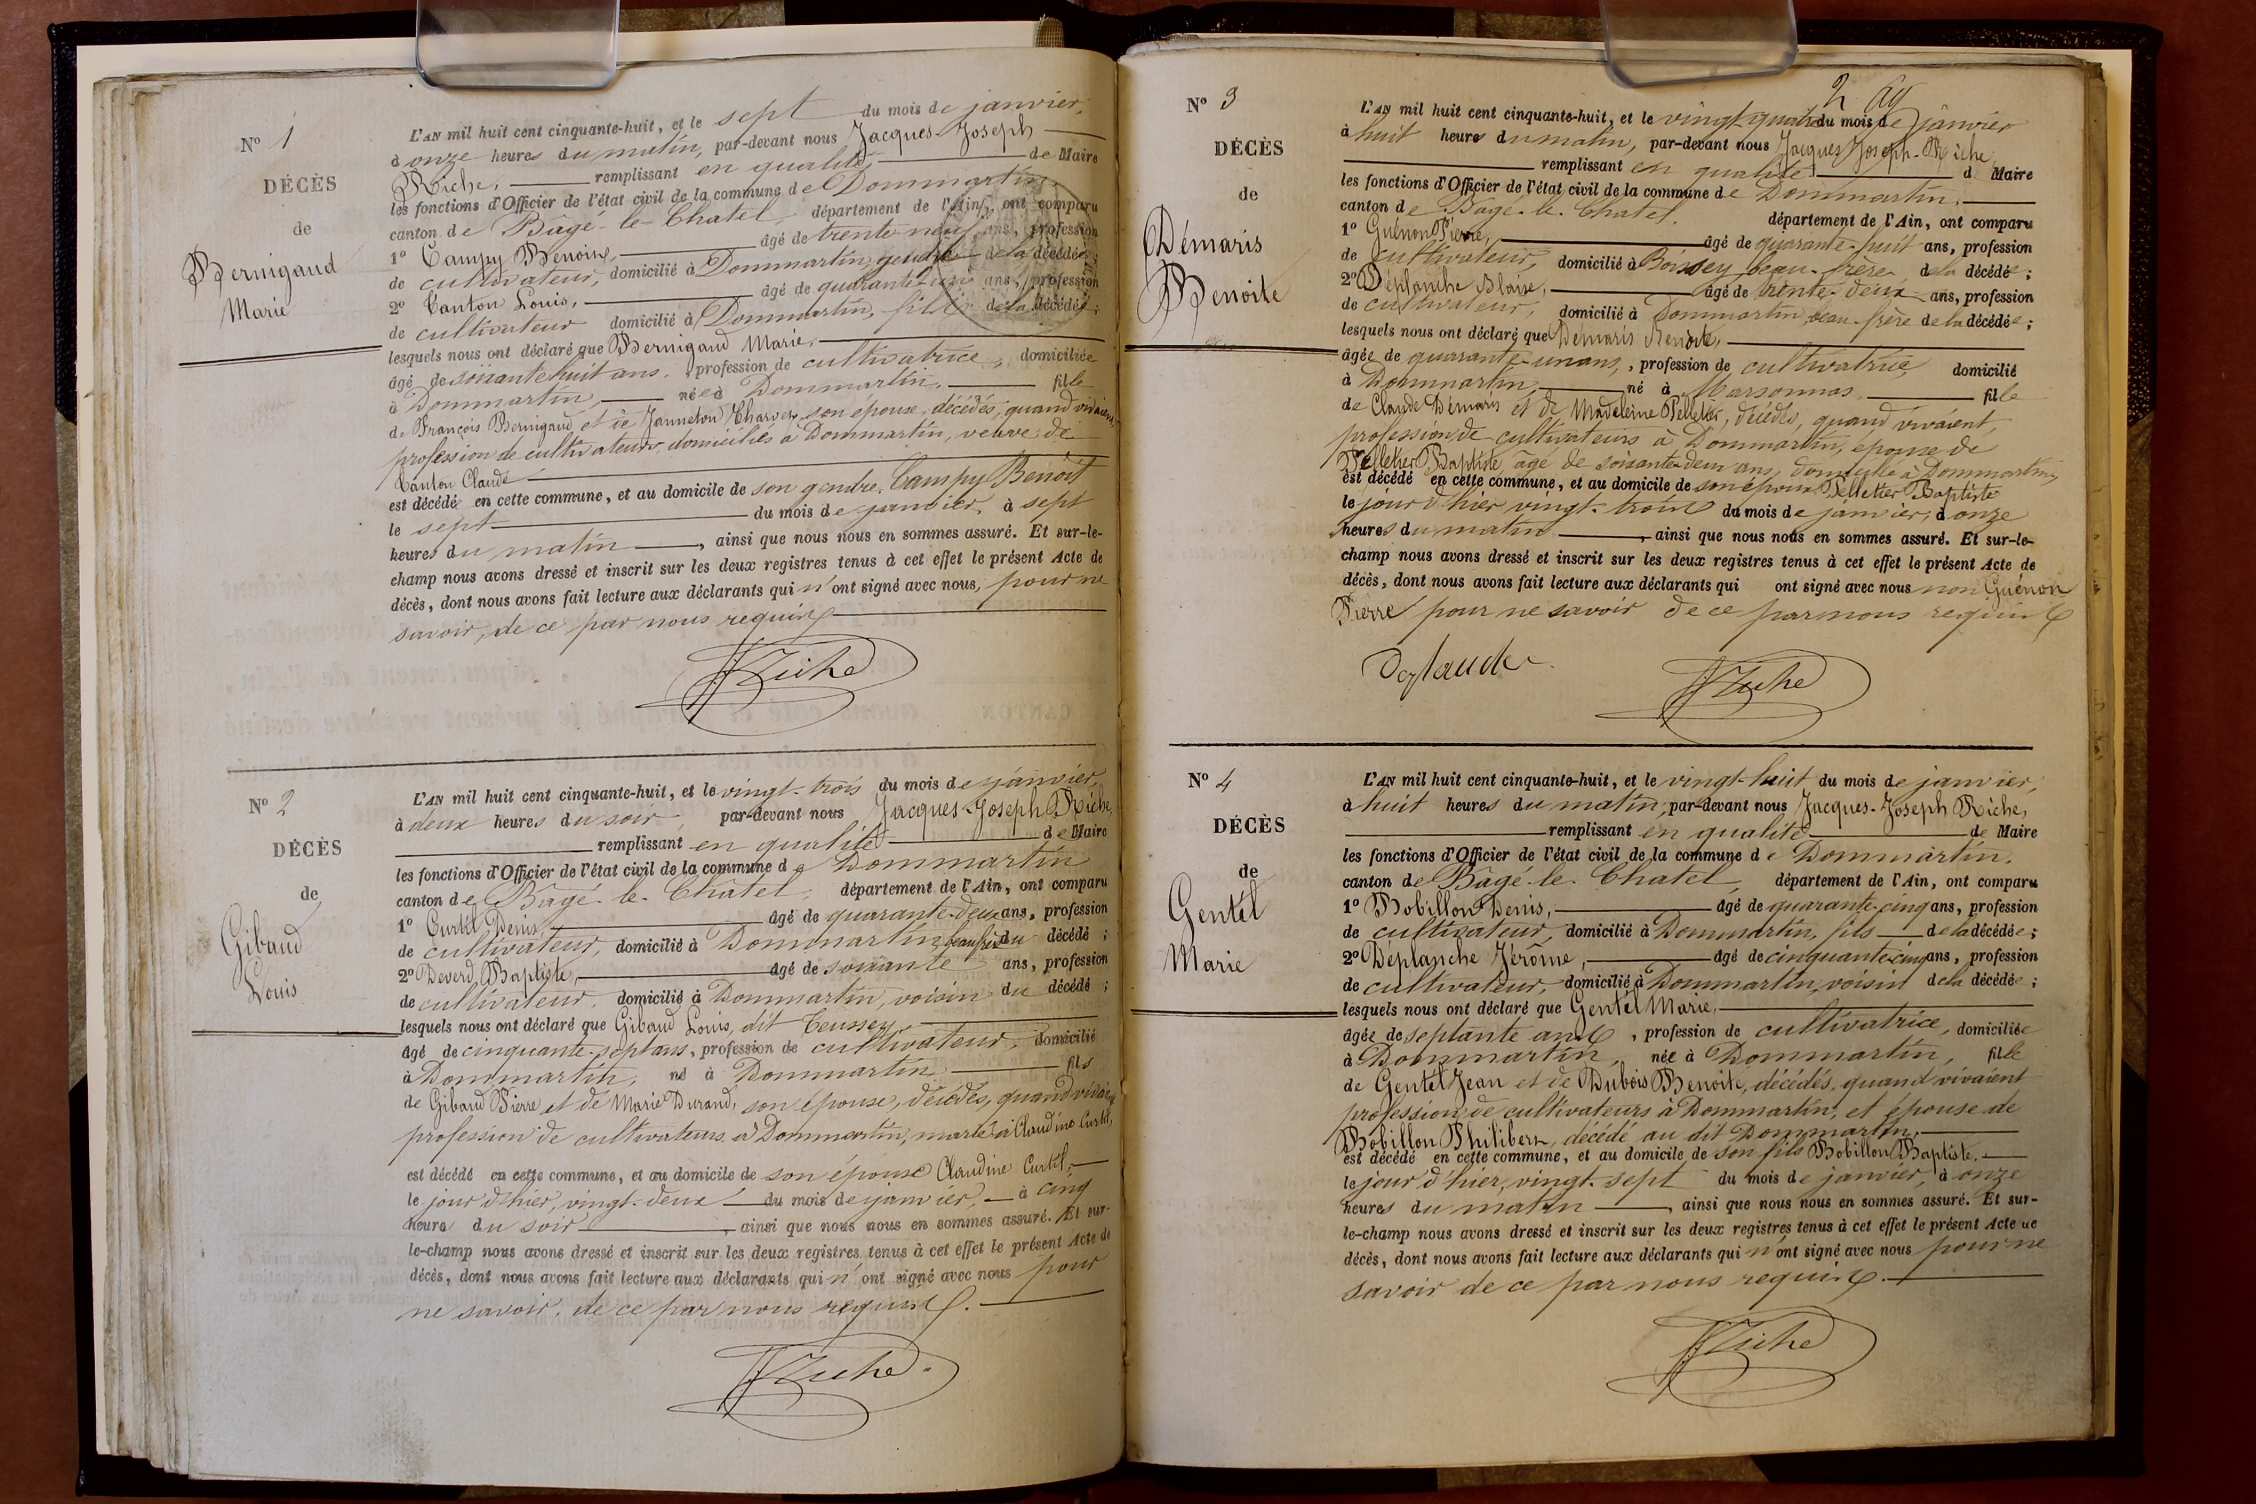 Nº 1
DÉCÈS
de
Bernigaud
Marie
L'AN mil huit cent cinquante-huit, et le sept du mois de janvier,
à onze heures du matin, par-devant nous Jacques-Joseph
Riche, remplissant en qualité de Maire
les fonctions d'Officier de l'état civil de la commune de Dommartin
canton de Bâgé-le-Chatel département de l'Ain, ont comparu
1º Campy Benoist, âgé de trente neuf ans, profession
de cultivateur, domicilié à Dommartin, gendre de la décédée;
2º Canton Louis, âgé de quarante-un ans, profession
de cultivateur domicilié à Dommartin, fils de la décédée;
lesquels nous ont déclaré que Bernigaud Marie,
âgé de soixante huit ans, profession de cultivatrice, domiciliée
à Dommartin, née à Dommartin, fille
de François Bernigaud et de Janneton Charvet, son épouse, décédés, quand vivaient
profession de cultivateurs domiciliés à Dommartin, veuve de
Canton Claude
est décédé en cette commune, et au domicile de son gendre, Campy Benoît
le sept du mois de janvier, à sept
heures du matin, ainsi que nous nous en sommes assuré. Et sur-le-
champ nous avons dressé et inscrit sur les deux registres tenus à cet effet le présent Acte de
décès, dont nous avons fait lecture aux déclarants qui n'ont signé avec nous, pour ne
savoir, de ce par nous requis
JJ Riche
Nº 2
DÉCÈS
de
Gibaud
Louis
L'AN mil huit cent cinquante-huit, et le vingt-trois du mois de janvier
à deux heures du soir, par-devant nous Jacques-Joseph Riche,
remplissant en qualité de Maire
les fonctions d'Officier de l'état civil de la commune de Dommartin
canton de Bâgé-le-Châtel, département de l'Ain, ont comparu
1º Curtil Denis, âgé de quarante-deux ans, profession
de cultivateur, domicilié à Dommartin, beau frère du décédé;
2º Deverd Baptiste, âgé de soixante ans, profession
de cultivateur, domicilié à Dommartin, voisin du décédé;
lesquels nous ont déclaré que Gibaud Louis, dit
âgé de cinquante-sept ans, profession de cultivateur, domicilié
à Dommartin, né à Dommartin fils
de Gibaud Pierre et de Marie Durand, son épouse, décédés, quand vivaient
profession de cultivateurs à Dommartin, marié à Claudine Curtil,
est décédé en cette commune, et au domicile de son épouse Claudine Curtil,
le jour d'hier, vingt-deux du mois de janvier, à cinq
heures du soir, ainsi que nous nous en sommes assuré. Et sur-
le-champ nous avons dressé et inscrit sur les deux registres tenus à cet effet le présent Acte de
décès, dont nous avons fait lecture aux déclarants qui n'ont signé avec nous pour
ne savoir, de ce par nous requis.
JJ Riche
2
Nº 3
DÉCÈS
de
Démaris
Benoite
L'AN mil huit cent cinquante-huit, et le vingt-quatre du mois de janvier
à huit heures du matin, par-devant nous Jacques Joseph-Riche,
remplissant en qualité de Maire
les fonctions d'Officier de l'état civil de la commune de Dommartin,
canton de Bâgé-le-Chatel. département de l'Ain, ont comparu
1º Guénon Pierre, âgé de quarante-huit ans, profession
de cultivateur, domicilié à Boissey, beau-frère de la décédée;
2º Déplanche Blaise, âgé de trente-deux ans, profession
de cultivateur, domicilié à Dommartin, beau-frère de la décédée;
lesquels nous ont déclaré que Démaris Benoite,
âgée de quarante-un ans, profession de cultivatrice, domicilié
à Dommartin, né à Marsonnas, fille
de Claude Démaris et de Madeleine Pelletier, décédés, quand vivaient,
profession de cultivateurs à Dommartin, épouse de
Pelletier Baptiste, âgé de soixante-deux ans, domicilié à Dommartin,
est décédé en cette commune, et au domicile de son époux Pelletier Baptiste
le jour d'hier vingt-trois du mois de janvier, à onze
heures du matin, ainsi que nous nous en sommes assuré. Et sur-le-
champ nous avons dressé et inscrit sur les deux registres tenus à cet effet le présent Acte de
décès, dont nous avons fait lecture aux déclarants qui ont signé avec nous non Guénon
Pierre pour ne savoir de ce par nous requis
JJ Riche
Nº 4
DÉCÈS
de
Gentél
Marie
L'AN mil huit cent cinquante-huit, et le vingt-huit du mois de janvier,
à huit heures du matin, par-devant nous Jacques-Joseph Riche,
remplissant en qualité de Maire
les fonctions d'Officier de l'état civil de la commune de Dommartin.
canton de Bâgé-le-Chatel, département de l'Ain, ont comparu
1º Bobillon Denis, âgé de quarante-cinq ans, profession
de cultivateur, domicilié à Dommartin, fils de la décédée;
2º Déplanche Jérôme, âgé de cinquante-cinq ans, profession
de cultivateur, domicilié à Dommartin, voisin de la décédée;
lesquels nous ont déclaré que Gentél Marie,
âgée de septante ans, profession de cultivatrice, domiciliée
à Dommartin, née à Dommartin, fille
de Gentel Jean et de Dubois Benoite, décédés, quand vivaient
profession de cultivateurs à Dommartin, et épouse de
Bobillon Philibert, décédé au dit Dommartin,
est décédé en cette commune, et au domicile de son fils Bobillon Baptiste.
le jour d'hier, vingt-sept du mois de janvier, à onze
heures du matin, ainsi que nous nous en sommes assuré. Et sur-
le-champ nous avons dressé et inscrit sur les deux registres tenus à cet effet le présent Acte de
décès, dont nous avons fait lecture aux déclarants qui n'ont signé avec nous pour ne
savoir de ce par nous requis.
JJ Riche